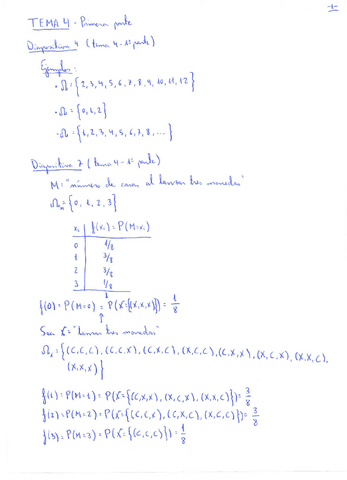 -1-
TEMA 4 - Primera parte
Diapositiva 4 (tema 4 - 1ª parte)
Ejemplos:
• Ω = {2, 3, 4, 5, 6, 7, 8, 9, 10, 11, 12}
• Ω = {0, 1, 2}
• Ω = {1, 2, 3, 4, 5, 6, 7, 8, ...}
Diapositiva 7 (tema 4 - 1ª parte)
M = "número de caras al lanzar tres monedas"
Ω_M = {0, 1, 2, 3}
x_i | f(x_i) = P(M = x_i)
0 | 1/8
1 | 3/8
2 | 3/8
3 | 1/8
1
f(0) = P(M = 0) = P(X = {(x, x, x)}) = 1/8
Sea X = "lanzar tres monedas"
Ω_X = {(c, c, c), (c, c, x), (c, x, c), (x, c, c), (c, x, x), (x, c, x), (x, x, c),
(x, x, x)}
f(1) = P(M = 1) = P(X = {(c, x, x), (x, c, x), (x, x, c)}) = 3/8
f(2) = P(M = 2) = P(X = {(c, c, x), (c, x, c), (x, c, c)}) = 3/8
f(3) = P(M = 3) = P(X = {(c, c, c)}) = 1/8